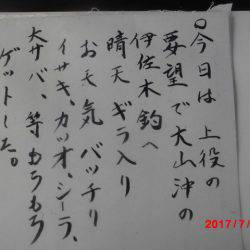 ○今日は上役の
要望で大山沖の
伊佐木釣へ
晴天ギラ入り
お天気バッチリ
イサキ、カツオ、シーラ、
大サバ、等もちもち
ゲットした。
2017/7/